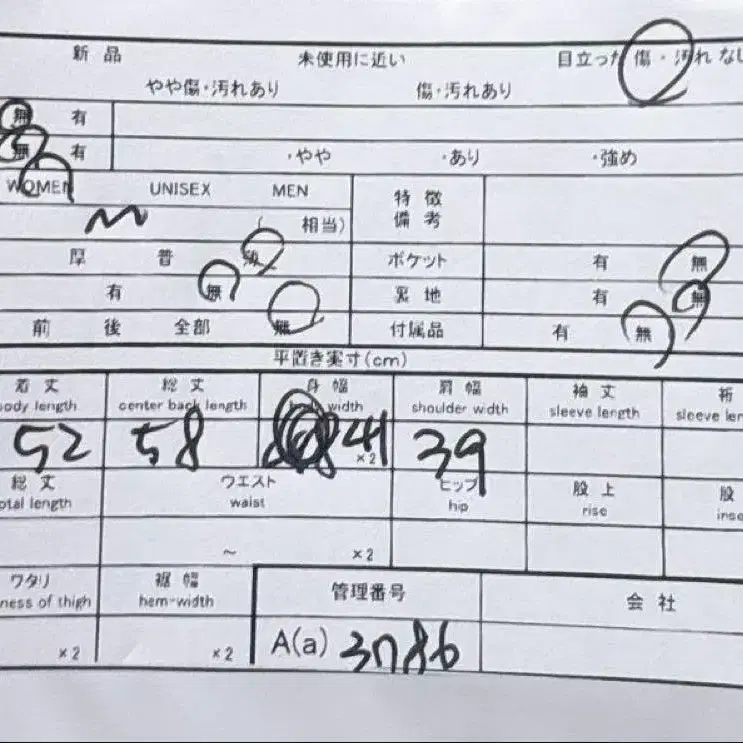 新品 未使用に近い 目立った傷・汚れなし
やや傷・汚れあり 傷・汚れあり
無 有
無 有 ・やや ・あり ・強め
WOMEN UNISEX MEN 特徴
備考
M ( 相当)
厚 普 ポケット 有 無
有 無 裏地 有 無
前 後 全部 無 付属品 有 無
平置き実寸(cm)
着丈 総丈 身幅 肩幅 袖丈 裄
body length center back length width shoulder width sleeve length sleeve len
52 58 41 ×2 39
総丈 ウエスト ヒップ 股上 股
total length waist hip rise inse
~ ×2
ワタリ 裾幅 管理番号 会社
ness of thigh hem-width
×2 ×2 A(a) 3786